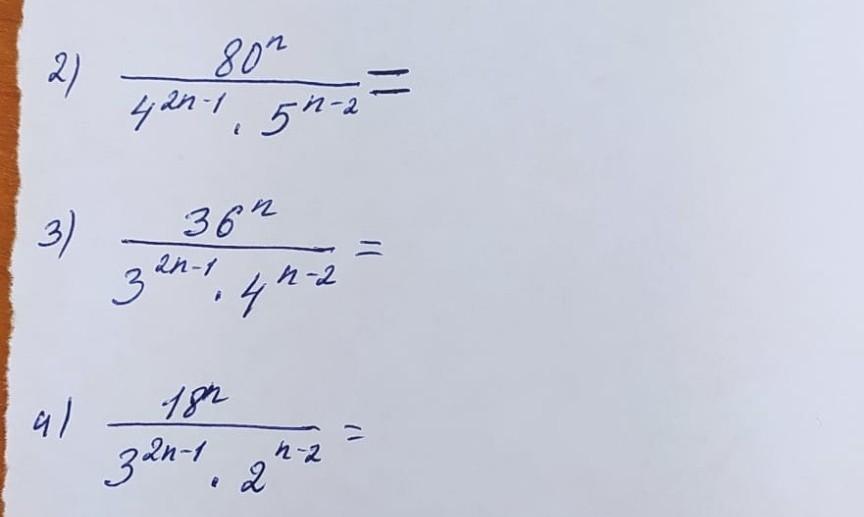 2) 80^n / (4^(2n-1) · 5^(n-2)) =
3) 36^n / (3^(2n-1) · 4^(n-2)) =
4) 18^n / (3^(2n-1) · 2^(n-2)) =